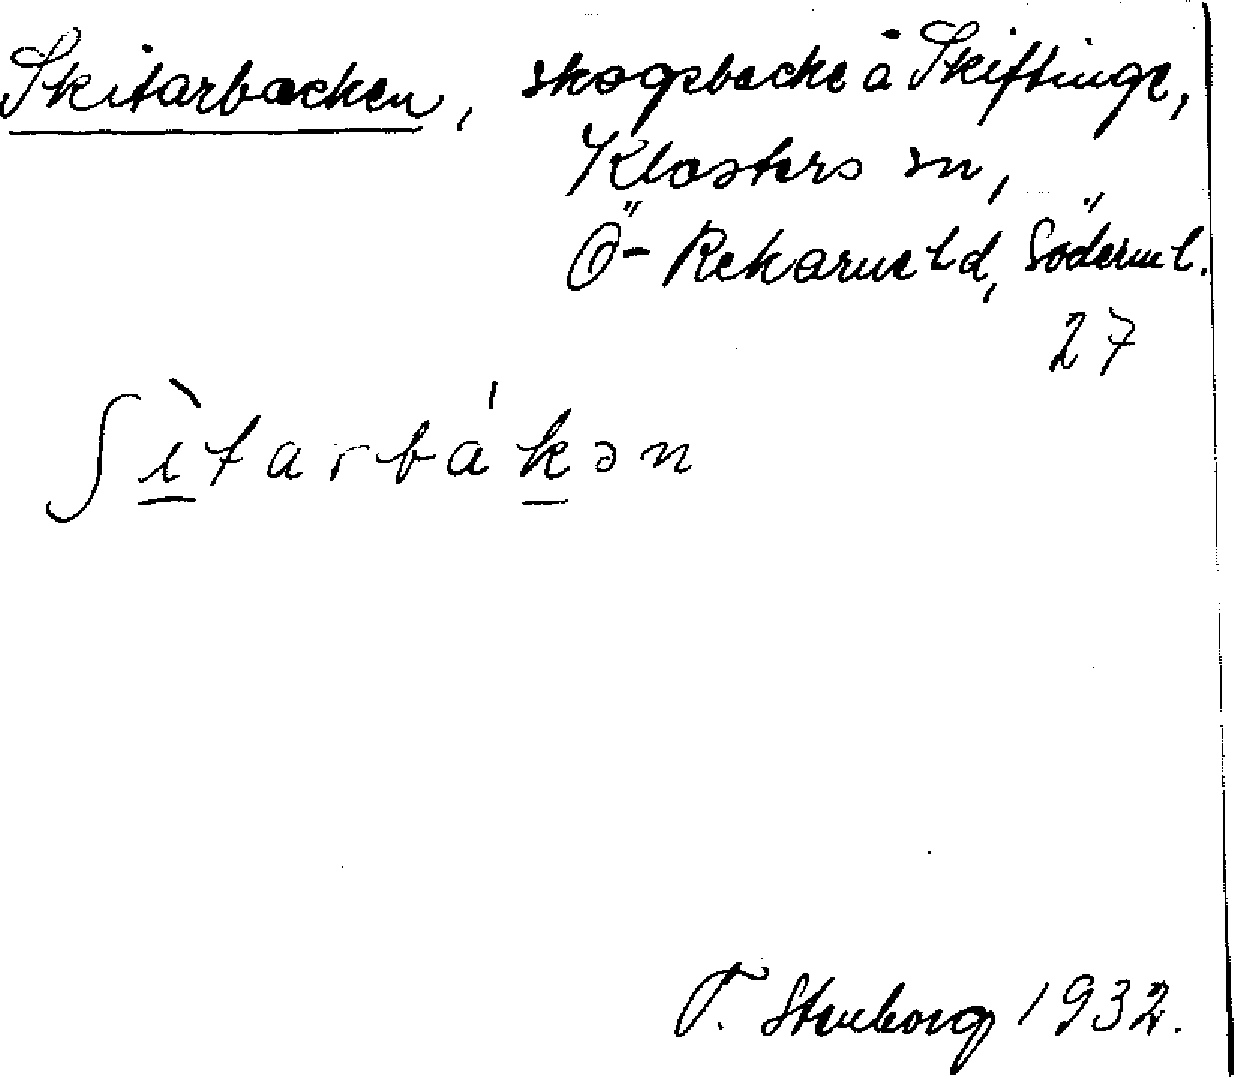 Skitarbacken, skogsbacke å Skiftinge,
Klosters sn,
Ö-Rekarne hd, Söderml.
27
ʃì̲tarbák̲ən
T. Stenborg 1932.